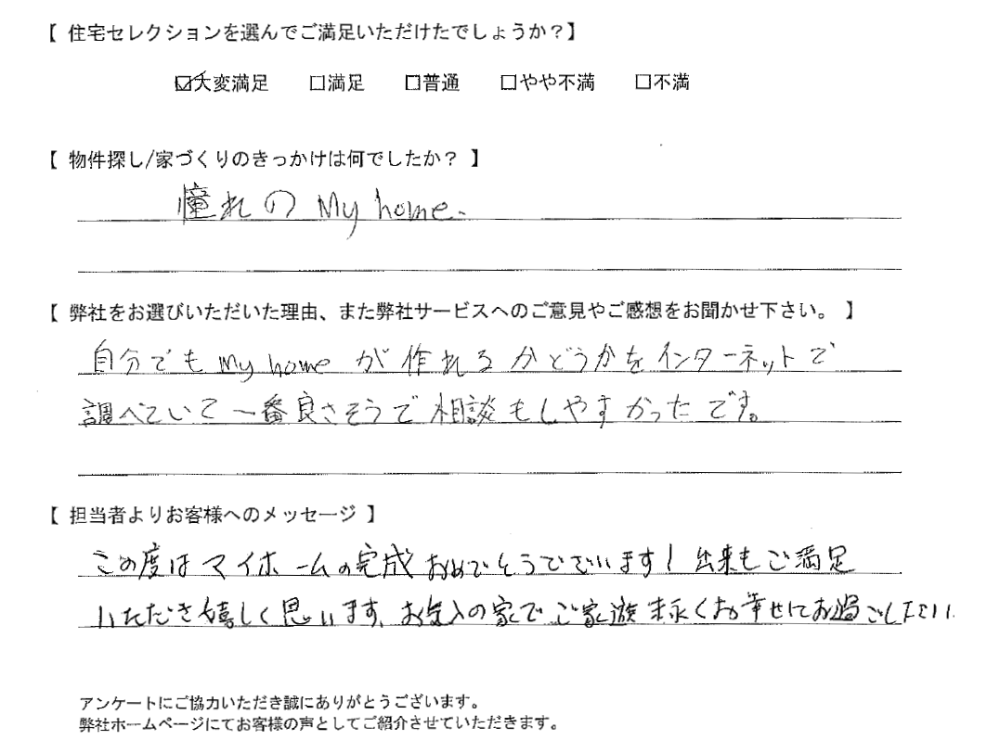 【 住宅セレクションを選んでご満足いただけたでしょうか？】
☑大変満足 □満足 □普通 □やや不満 □不満
【 物件探し/家づくりのきっかけは何でしたか？ 】
憧れの My home.
【 弊社をお選びいただいた理由、また弊社サービスへのご意見やご感想をお聞かせ下さい。 】
自分でも my home が 作れるかどうかを インターネットで
調べていて 一番良さそうで 相談もしやすかったです。
【 担当者よりお客様へのメッセージ 】
この度は マイホームの完成 おめでとうございます! 出来も ご満足
いただき 嬉しく思います。お気入の家で ご家族 末永くお幸せにお過ごし下さい
アンケートにご協力いただき誠にありがとうございます。
弊社ホームページにてお客様の声としてご紹介させていただきます。